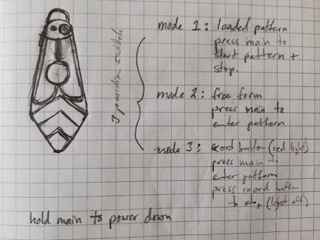 3 position switch
mode 1: loaded pattern
press main to
start pattern +
stop.
mode 2: free form
press main to
enter pattern
mode 3: record button (red light)
press main to
enter pattern
press record button
to stop (light off)
hold main to power down